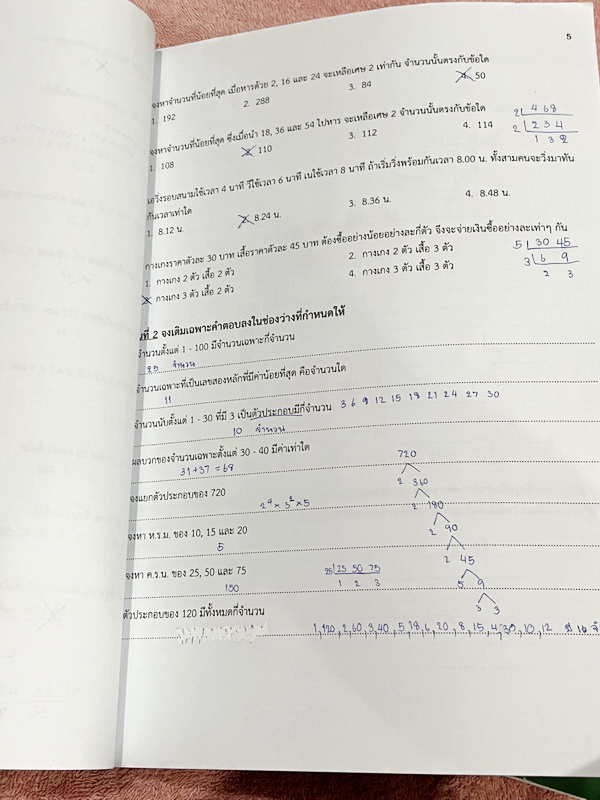 5
จงหาจำนวนที่น้อยที่สุด เมื่อหารด้วย 2, 16 และ 24 จะเหลือเศษ 2 เท่ากัน จำนวนนั้นตรงกับข้อใด
1. 192 2. 288 3. 84 4. 50
จงหาจำนวนที่น้อยที่สุด ซึ่งเมื่อนำ 18, 36 และ 54 ไปหาร จะเหลือเศษ 2 จำนวนนั้นตรงกับข้อใด
1. 108 2. 110 3. 112 4. 114
2 468
2 234
1 3
เอวิ่งรอบสนามใช้เวลา 4 นาที วีใช้เวลา 6 นาที เนใช้เวลา 8 นาที ถ้าเริ่มวิ่งพร้อมกันเวลา 8.00 น. ทั้งสามคนจะวิ่งมาทัน
กันเวลาเท่าใด
1. 8.12 น. 2. 8.24 น. 3. 8.36 น. 4. 8.48 น.
กางเกงราคาตัวละ 30 บาท เสื้อราคาตัวละ 45 บาท ต้องซื้ออย่างน้อยอย่างละกี่ตัว จึงจะจ่ายเงินซื้ออย่างละเท่าๆ กัน
1. กางเกง 2 ตัว เสื้อ 2 ตัว 2. กางเกง 2 ตัว เสื้อ 3 ตัว
กางเกง 3 ตัว เสื้อ 2 ตัว 4. กางเกง 3 ตัว เสื้อ 3 ตัว
5 30 45
3 6 9
2 3
ที่ 2 จงเติมเฉพาะคำตอบลงในช่องว่างที่กำหนดให้
จำนวนตั้งแต่ 1 - 100 มีจำนวนเฉพาะกี่จำนวน
25 จำนวน
จำนวนเฉพาะที่เป็นเลขสองหลักที่มีค่าน้อยที่สุด คือจำนวนใด
11
จำนวนนับตั้งแต่ 1 - 30 ที่มี 3 เป็นตัวประกอบมีกี่จำนวน 3 6 9 12 15 18 21 24 27 30
10 จำนวน
ผลบวกของจำนวนเฉพาะตั้งแต่ 30 - 40 มีค่าเท่าใด
31+37 = 68
จงแยกตัวประกอบของ 720
2⁴ × 3² × 5
720
2 360
2 180
2 90
2 45
5 9
3 3
จงหา ห.ร.ม. ของ 10, 15 และ 20
5
จงหา ค.ร.น. ของ 25, 50 และ 75
150
25 25 50 75
1 2 3
ตัวประกอบของ 120 มีทั้งหมดกี่จำนวน
1,120,2,60,3,40,5,18,6,20,8,15,4,30,10,12 มี 16 จำ